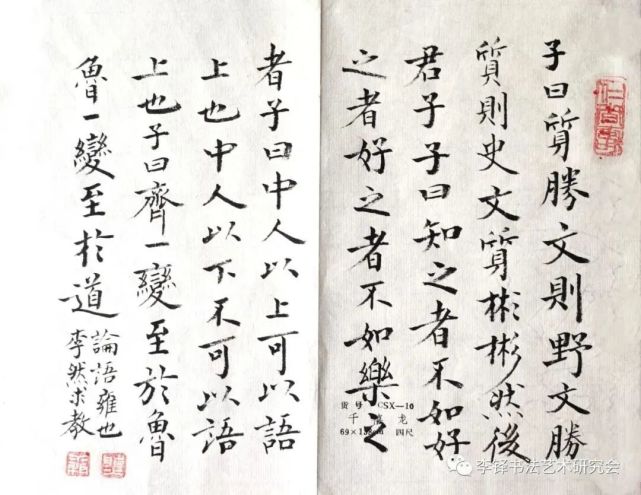 子曰質勝文則野文勝
質則史文質彬彬然後
君子子曰知之者不如好
之者好之者不如樂之
者子曰中人以上可以語
上也中人以下不可以語
上也子曰齊一變至於魯
魯一變至於道
論語雍也
李然求教
货号 CSX—10
龙
69×138cm 四尺
李铎书法艺术研究会